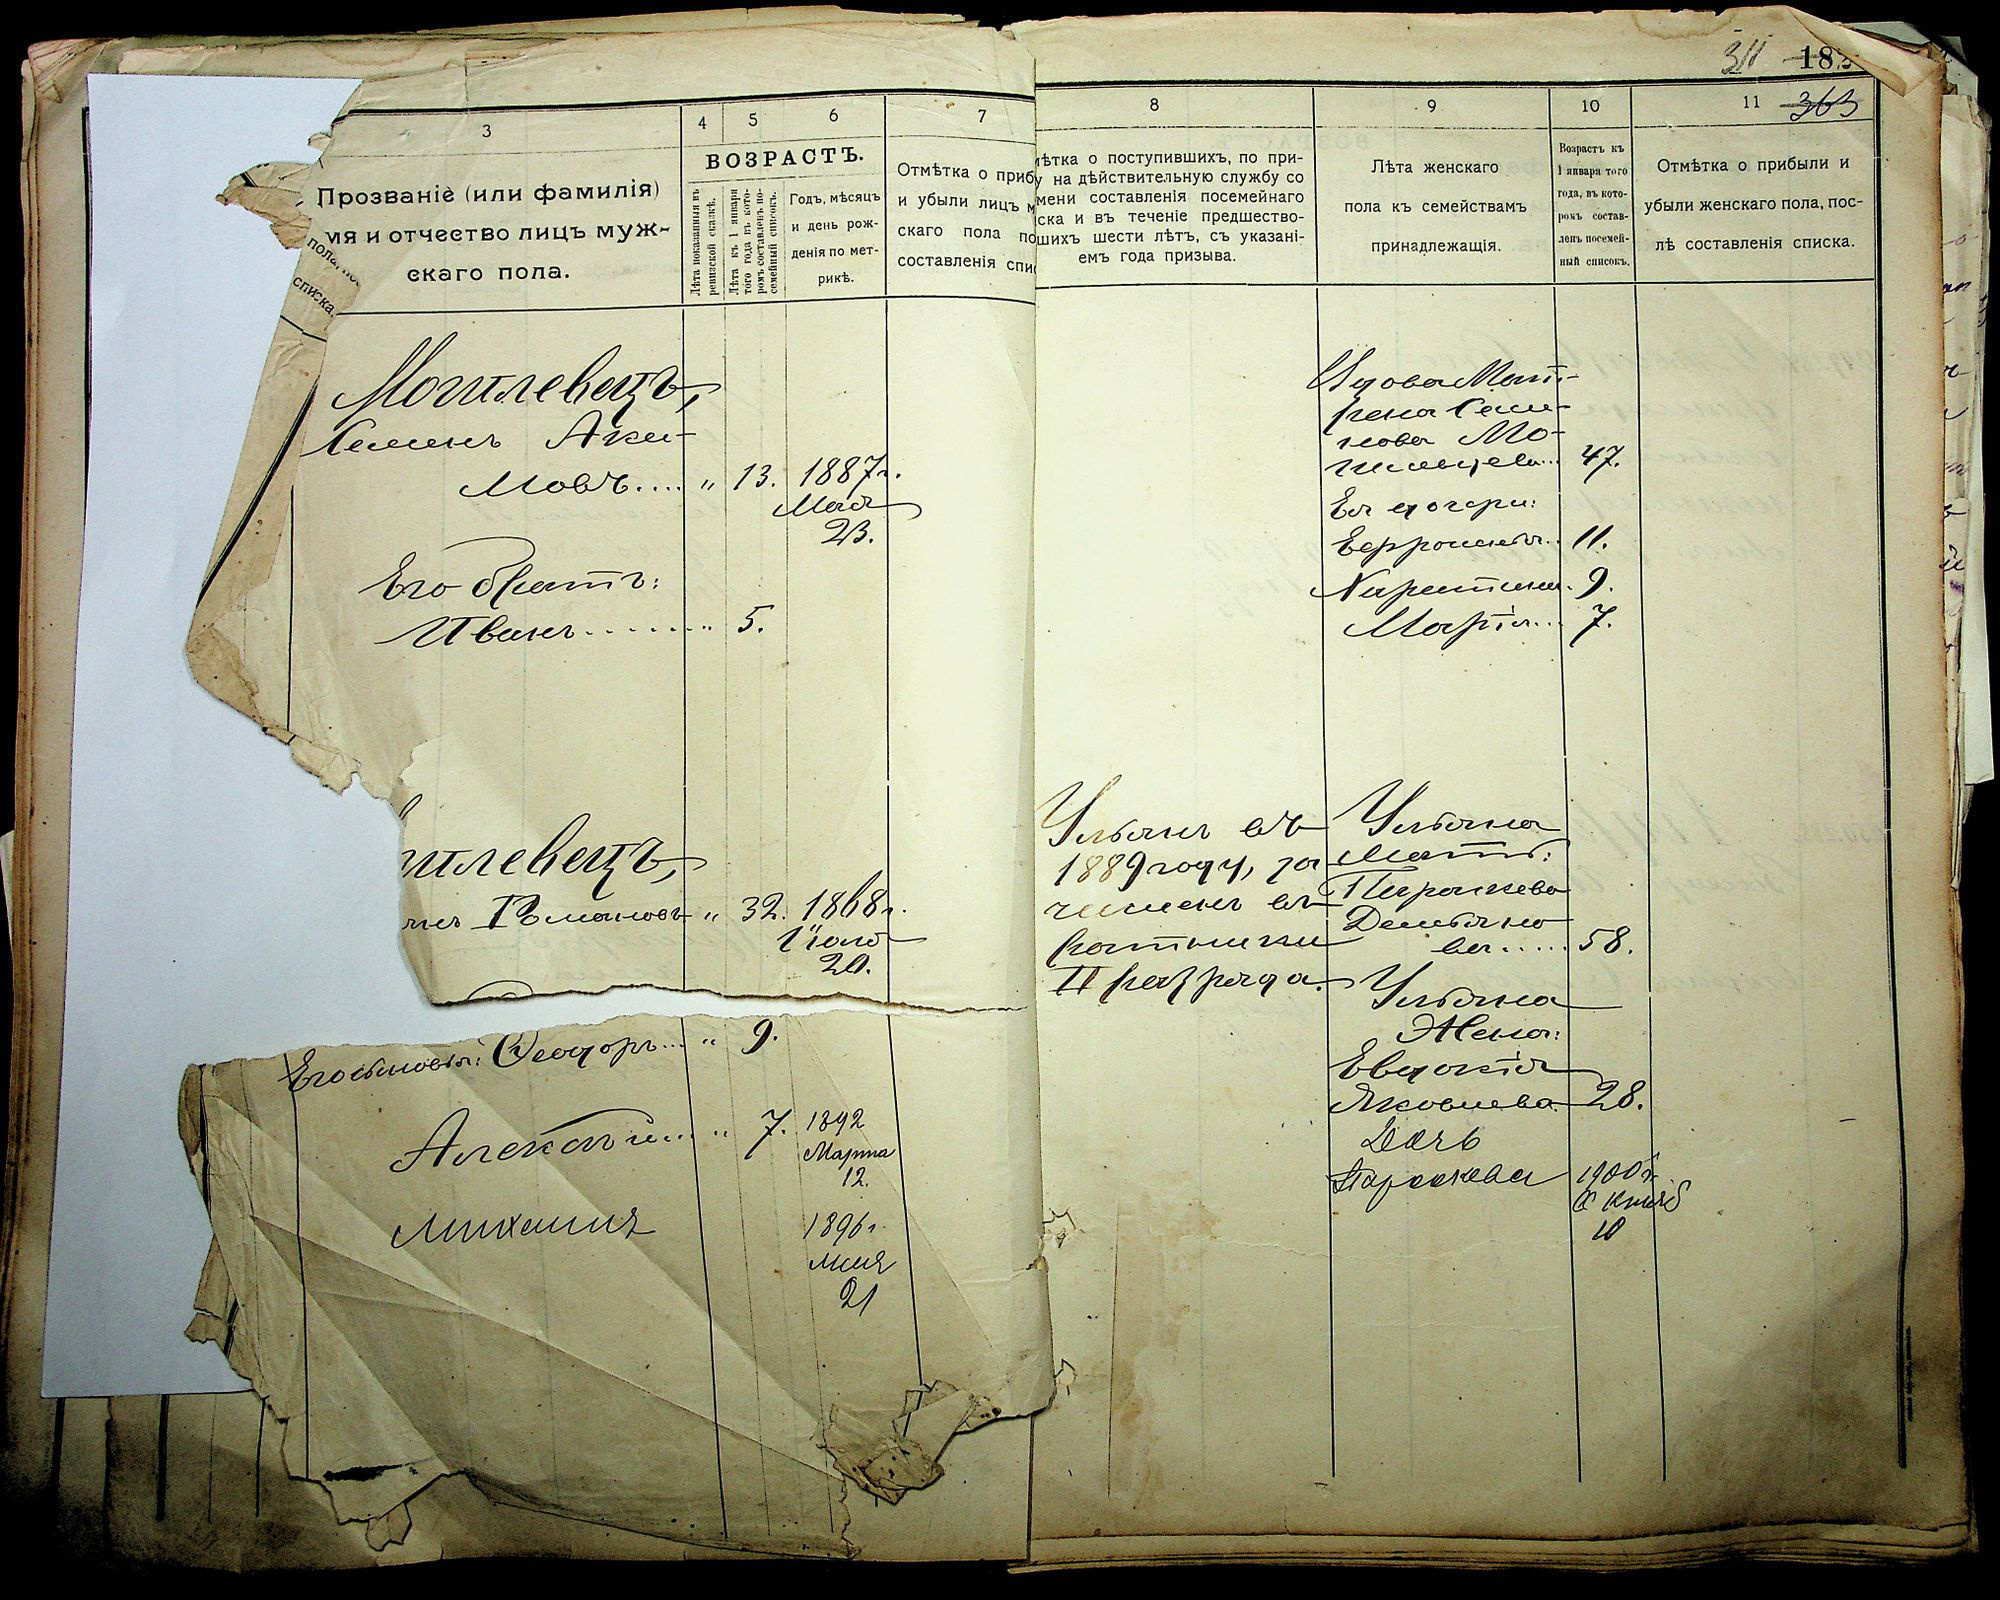 311 18
3 4 5 6 7
Прозваніе (или фамилія)
мя и отчество лицъ муж-
скаго пола.
ВОЗРАСТЪ.
Лѣта показанныя въ
ревизской сказкѣ.
Лѣта къ 1 января
того года въ кото-
ромъ составленъ по-
семейный списокъ.
Годъ, мѣсяцъ
и день рож-
денія по мет-
рикѣ.
Отмѣтка о приб
и убыли лицъ м
скаго пола по
составленія спи
списка.
Могилевецъ,
Семенъ Аки-
мовъ.... „ 13. 1887г.
Мая
23.
Его братъ:
Иванъ........ „ 5.
гилевецъ,
Романовъ „ 32. 1868г.
Іюля
20.
Его сыновья: Ѳеодоръ... „ 9.
Алексѣй... „ 7. 1892
Марта
12.
Михаилъ 1896г.
Мая
21
8 9 10 11 363
ѣтка о поступившихъ, по при-
у на дѣйствительную службу со
мени составленія посемейнаго
ска и въ теченіе предшество-
шихъ шести лѣтъ, съ указані-
емъ года призыва.
Лѣта женскаго
пола къ семействамъ
принадлежащія.
Возрастъ къ
1 января того
года, въ кото-
ромъ состав-
ленъ посемей-
ный списокъ.
Отмѣтка о прибыли и
убыли женскаго пола, пос-
лѣ составленія списка.
Вдова Мат-
рена Семе-
нова Мо-
гилевцева... 47.
Ея дочери:
Евфросинья.. 11.
Харитина. 9.
Марія... 7.
Ульянъ въ
1889 году, за
численъ въ
ратники
II разряда.
Ульяна
мать:
Параскева
Демьяно
ва..... 58.
Ульяна
Жена:
Евдокія
Яковлева. 28.
Дочь
Параскева 1900г.
Октяб
10